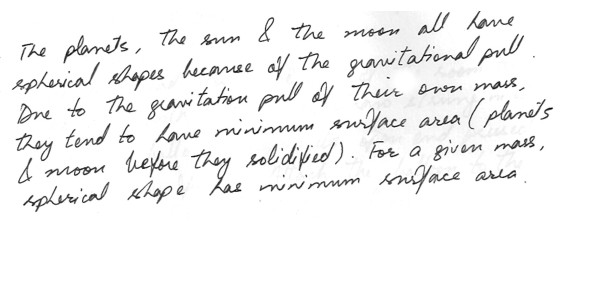 The planets, the sun & the moon all have
spherical shapes because of the gravitational pull.
Due to the gravitation pull of their own mass,
they tend to have minimum surface area (planets
& moon before they solidified). For a given mass,
spherical shape has minimum surface area.